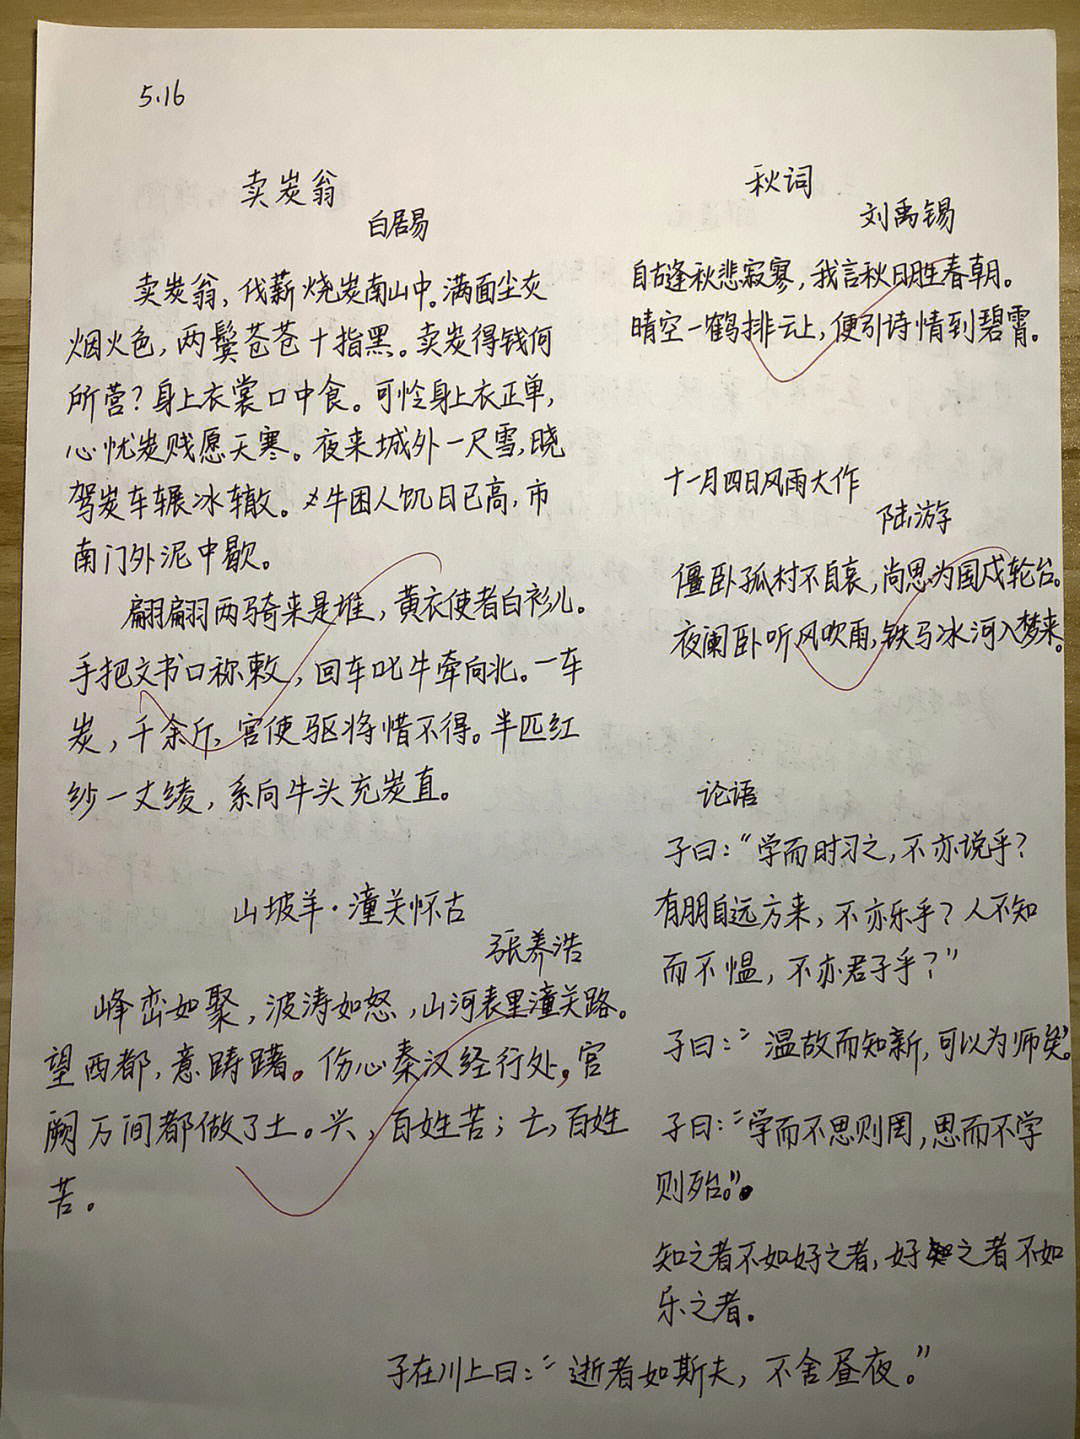 5.16
卖炭翁
白居易
卖炭翁，伐薪烧炭南山中。满面尘灰
烟火色，两鬓苍苍十指黑。卖炭得钱何
所营？身上衣裳口中食。可怜身上衣正单，
心忧炭贱愿天寒。夜来城外一尺雪，晓
驾炭车辗冰辙。牛困人饥日已高，市
南门外泥中歇。
翩翩两骑来是谁，黄衣使者白衫儿。
手把文书口称敕，回车叱牛牵向北。一车
炭，千余斤，宫使驱将惜不得。半匹红
纱一丈绫，系向牛头充炭直。
山坡羊·潼关怀古
张养浩
峰峦如聚，波涛如怒，山河表里潼关路。
望西都，意踌躇。伤心秦汉经行处，宫
阙万间都做了土。兴，百姓苦；亡，百姓
苦。
秋词
刘禹锡
自古逢秋悲寂寥，我言秋日胜春朝。
晴空一鹤排云上，便引诗情到碧霄。
十一月四日风雨大作
陆游
僵卧孤村不自哀，尚思为国戍轮台。
夜阑卧听风吹雨，铁马冰河入梦来。
论语
子曰：“学而时习之，不亦说乎？
有朋自远方来，不亦乐乎？人不知
而不愠，不亦君子乎？”
子曰：“温故而知新，可以为师矣。”
子曰：“学而不思则罔，思而不学
则殆。”
知之者不如好之者，好之者不如
乐之者。
子在川上曰：“逝者如斯夫，不舍昼夜。”